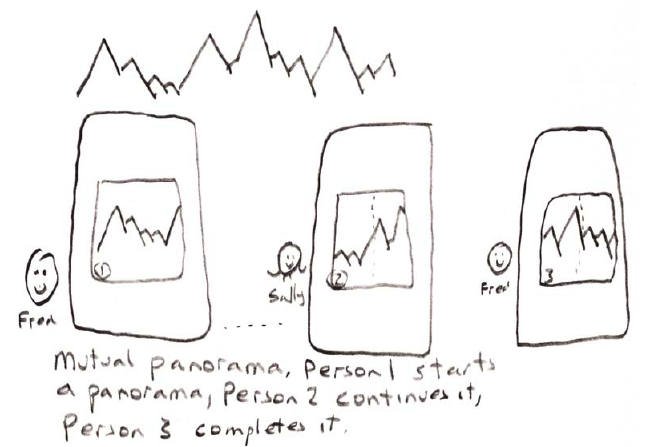 1
2
3
Fred
Sally
Fred
Mutual panorama, Person 1 starts
a panorama, Person 2 continues it,
Person 3 completes it.